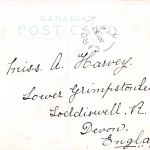 CANADIAN
POST CARD
Miss A. Harvey.
Lower Grimpstonle
Loddiswell. R.
Devon.
Engla